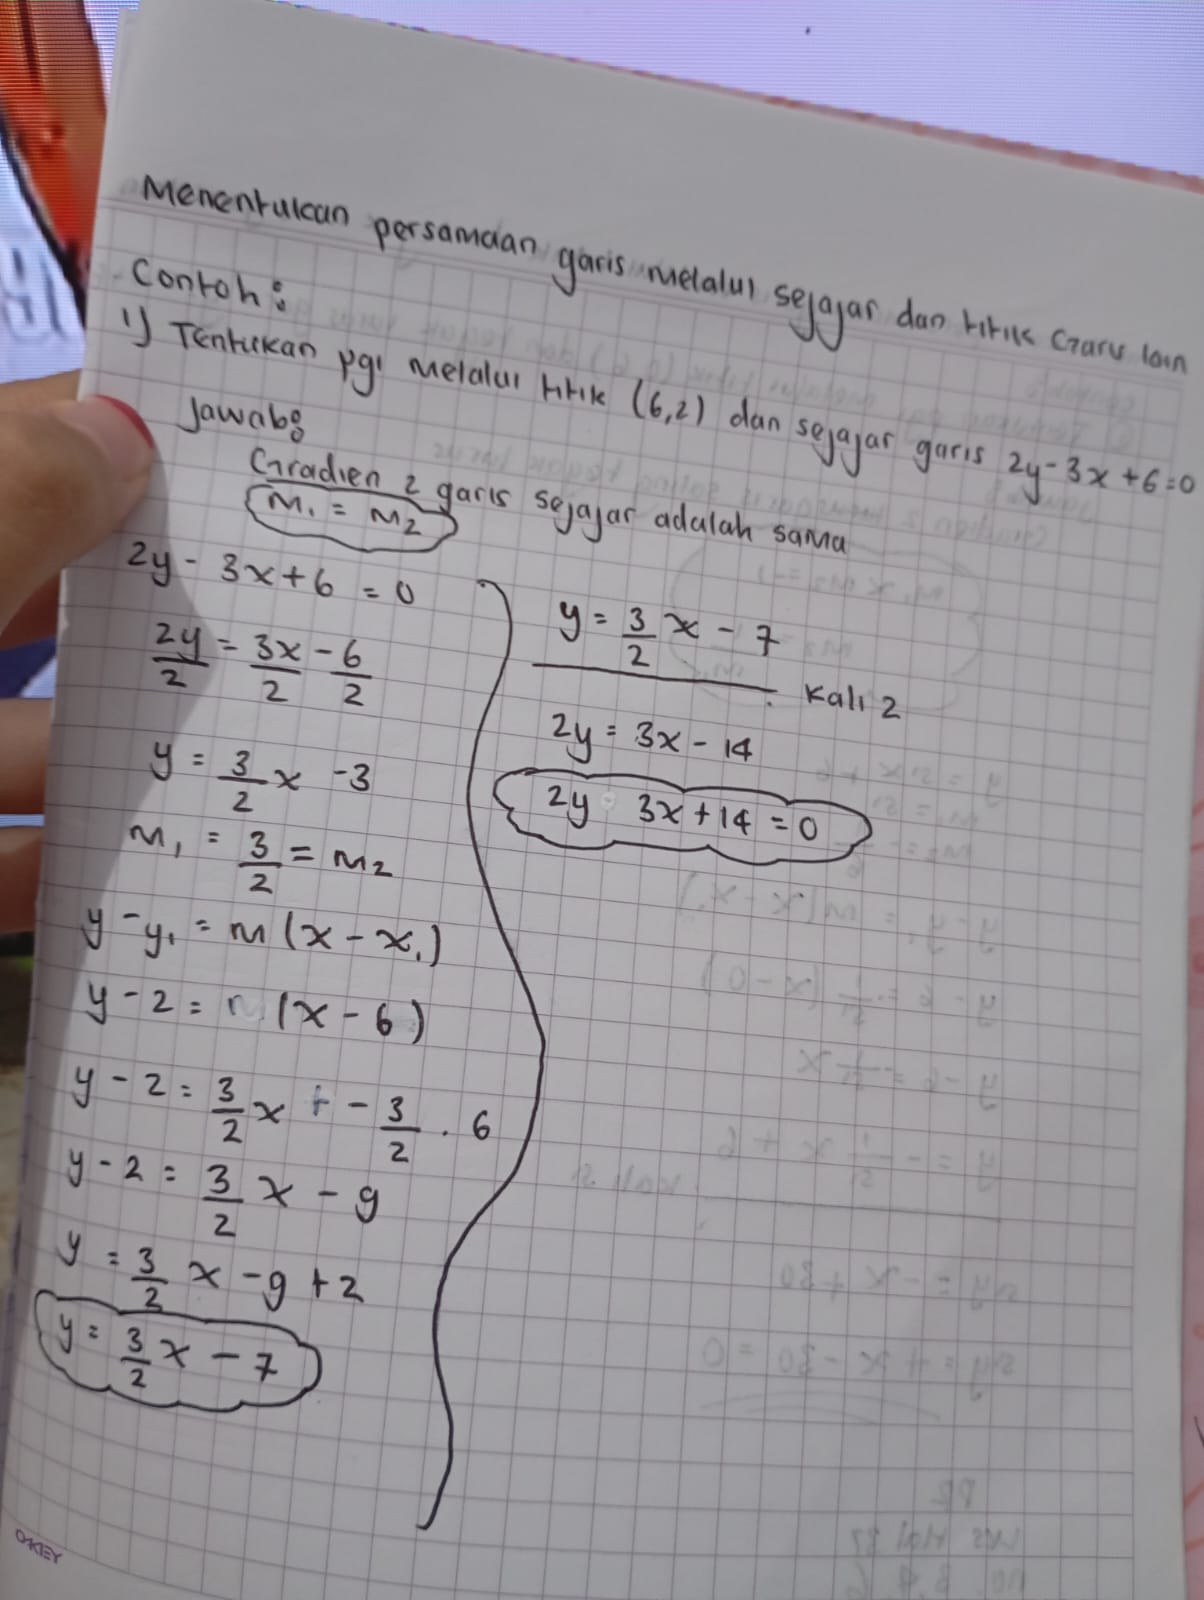 Menentukan persamaan garis melalui sejajar dan titik Garis lain
Contoh:
1) Tentukan pgl melalui titik (6,2) dan sejajar garis 2y-3x+6=0
Jawab:
Gradien 2 garis sejajar adalah sama
m₁ = m₂
2y - 3x + 6 = 0
2y/2 = 3x/2 - 6/2
y = 3/2 x - 3
m₁ = 3/2 = m₂
y - y₁ = m (x - x₁)
y - 2 = m (x - 6)
y - 2 = 3/2 x + - 3/2 . 6
y - 2 = 3/2 x - 9
y = 3/2 x - 9 + 2
y = 3/2 x - 7
y = 3/2 x - 7
kali 2
2y = 3x - 14
2y - 3x + 14 = 0
OKEY